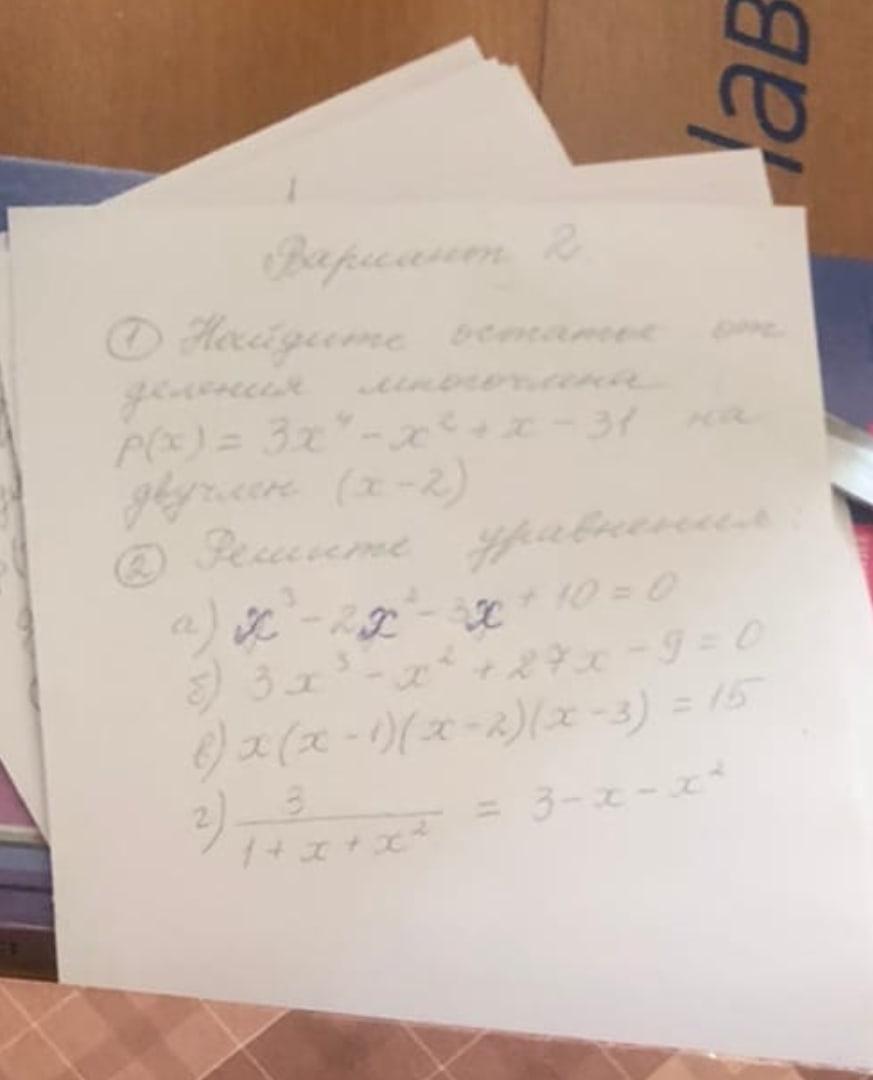 Вариант 2
① Найдите остаток от
деления многочлена
P(x) = 3x⁴ - x² + x - 31 на
двучлен (x-2)
② Решите уравнения:
а) x³ - 2x² - 3x + 10 = 0
б) 3x³ - x² + 27x - 9 = 0
в) x(x-1)(x-2)(x-3) = 15
г) 3/(1+x+x²) = 3-x-x²